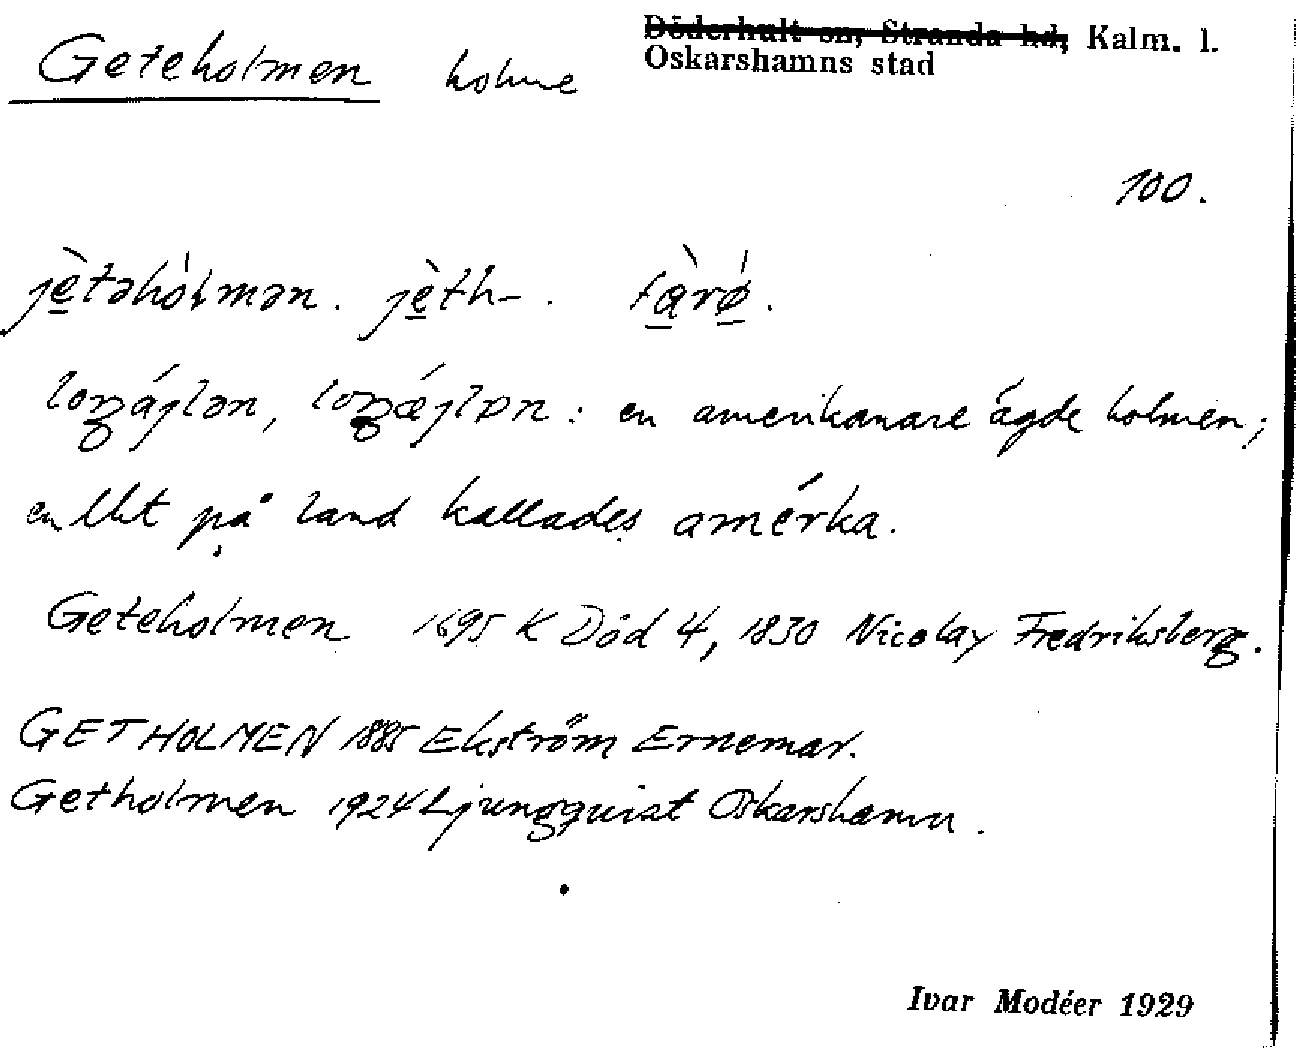 Geteholmen holme
Döderhult sn, Stranda hd, Kalm. l.
Oskarshamns stad
100.
jètəhòlmən. jèth-. fàrǿ.
loŋájlən, loŋǽjlən: en amerikanare ägde holmen;
en på land kallades amérka.
Geteholmen 1695 K Död 4, 1830 Nicolay Fredriksberg.
GETHOLMEN 1885 Ekström Ernemar.
Getholmen 1924 Ljungquist Oskarshamn.
Ivar Modéer 1929